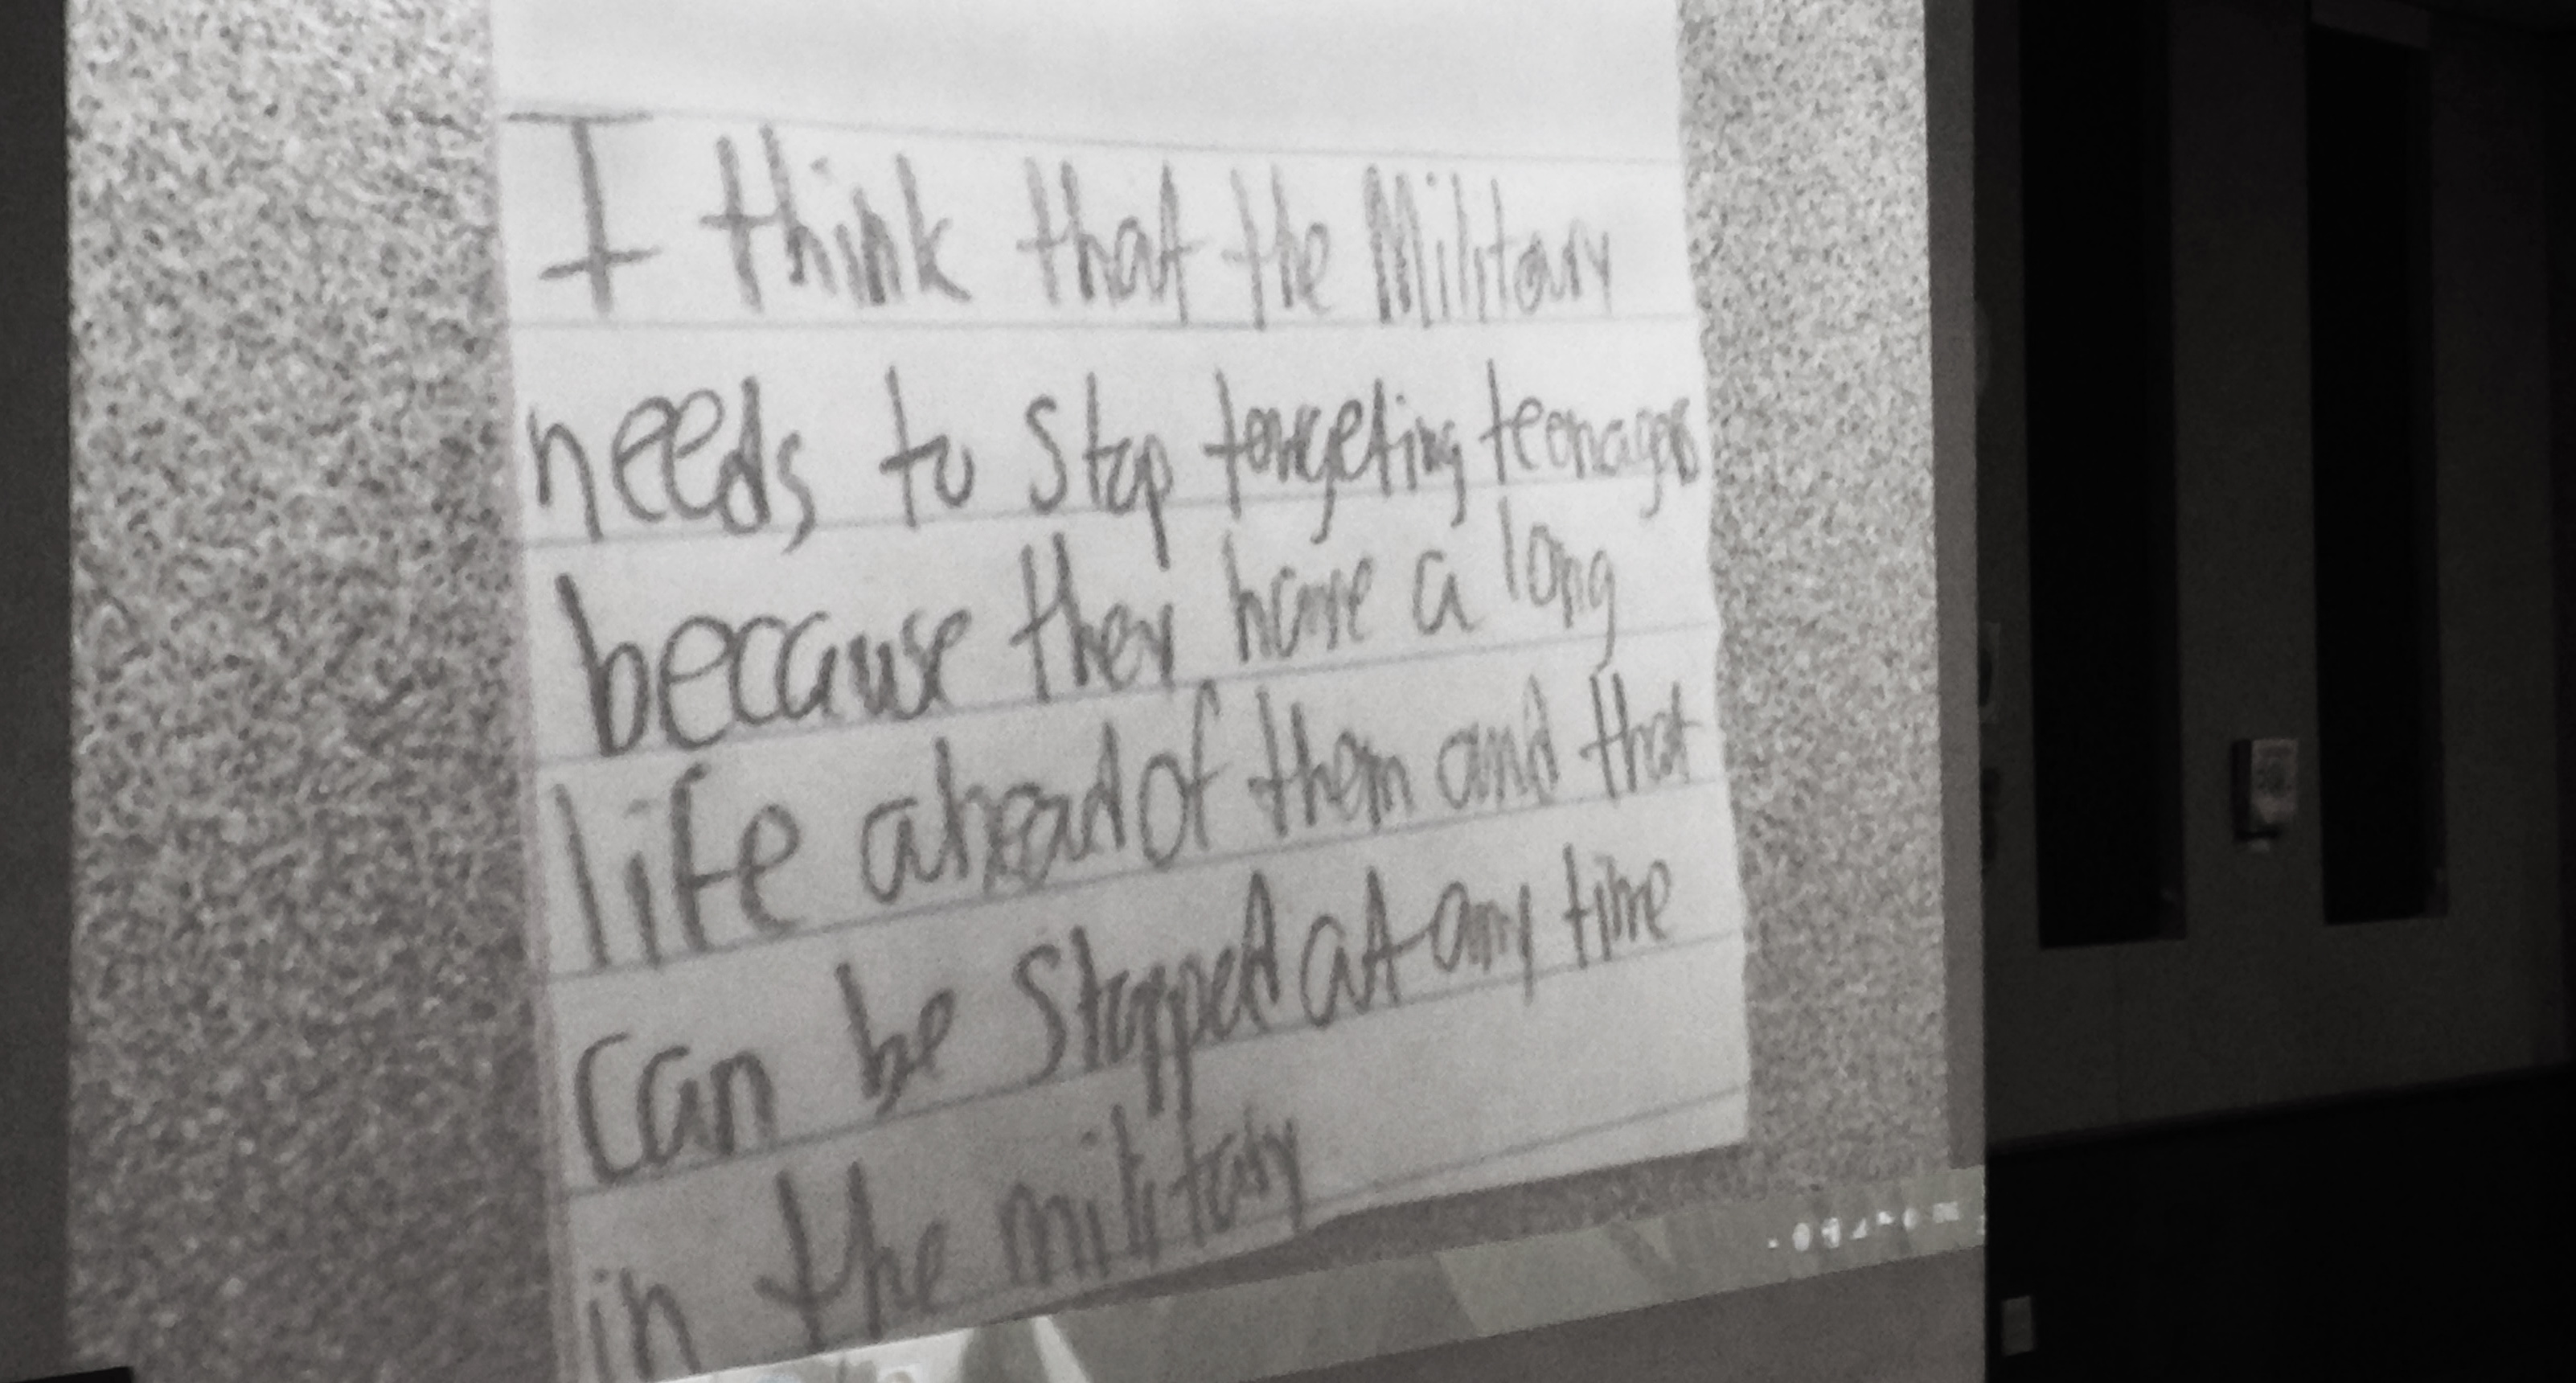 I think that the Military
needs to stop targeting teenagers
because they have a long
life ahead of them and that
can be stopped at any time
in the military